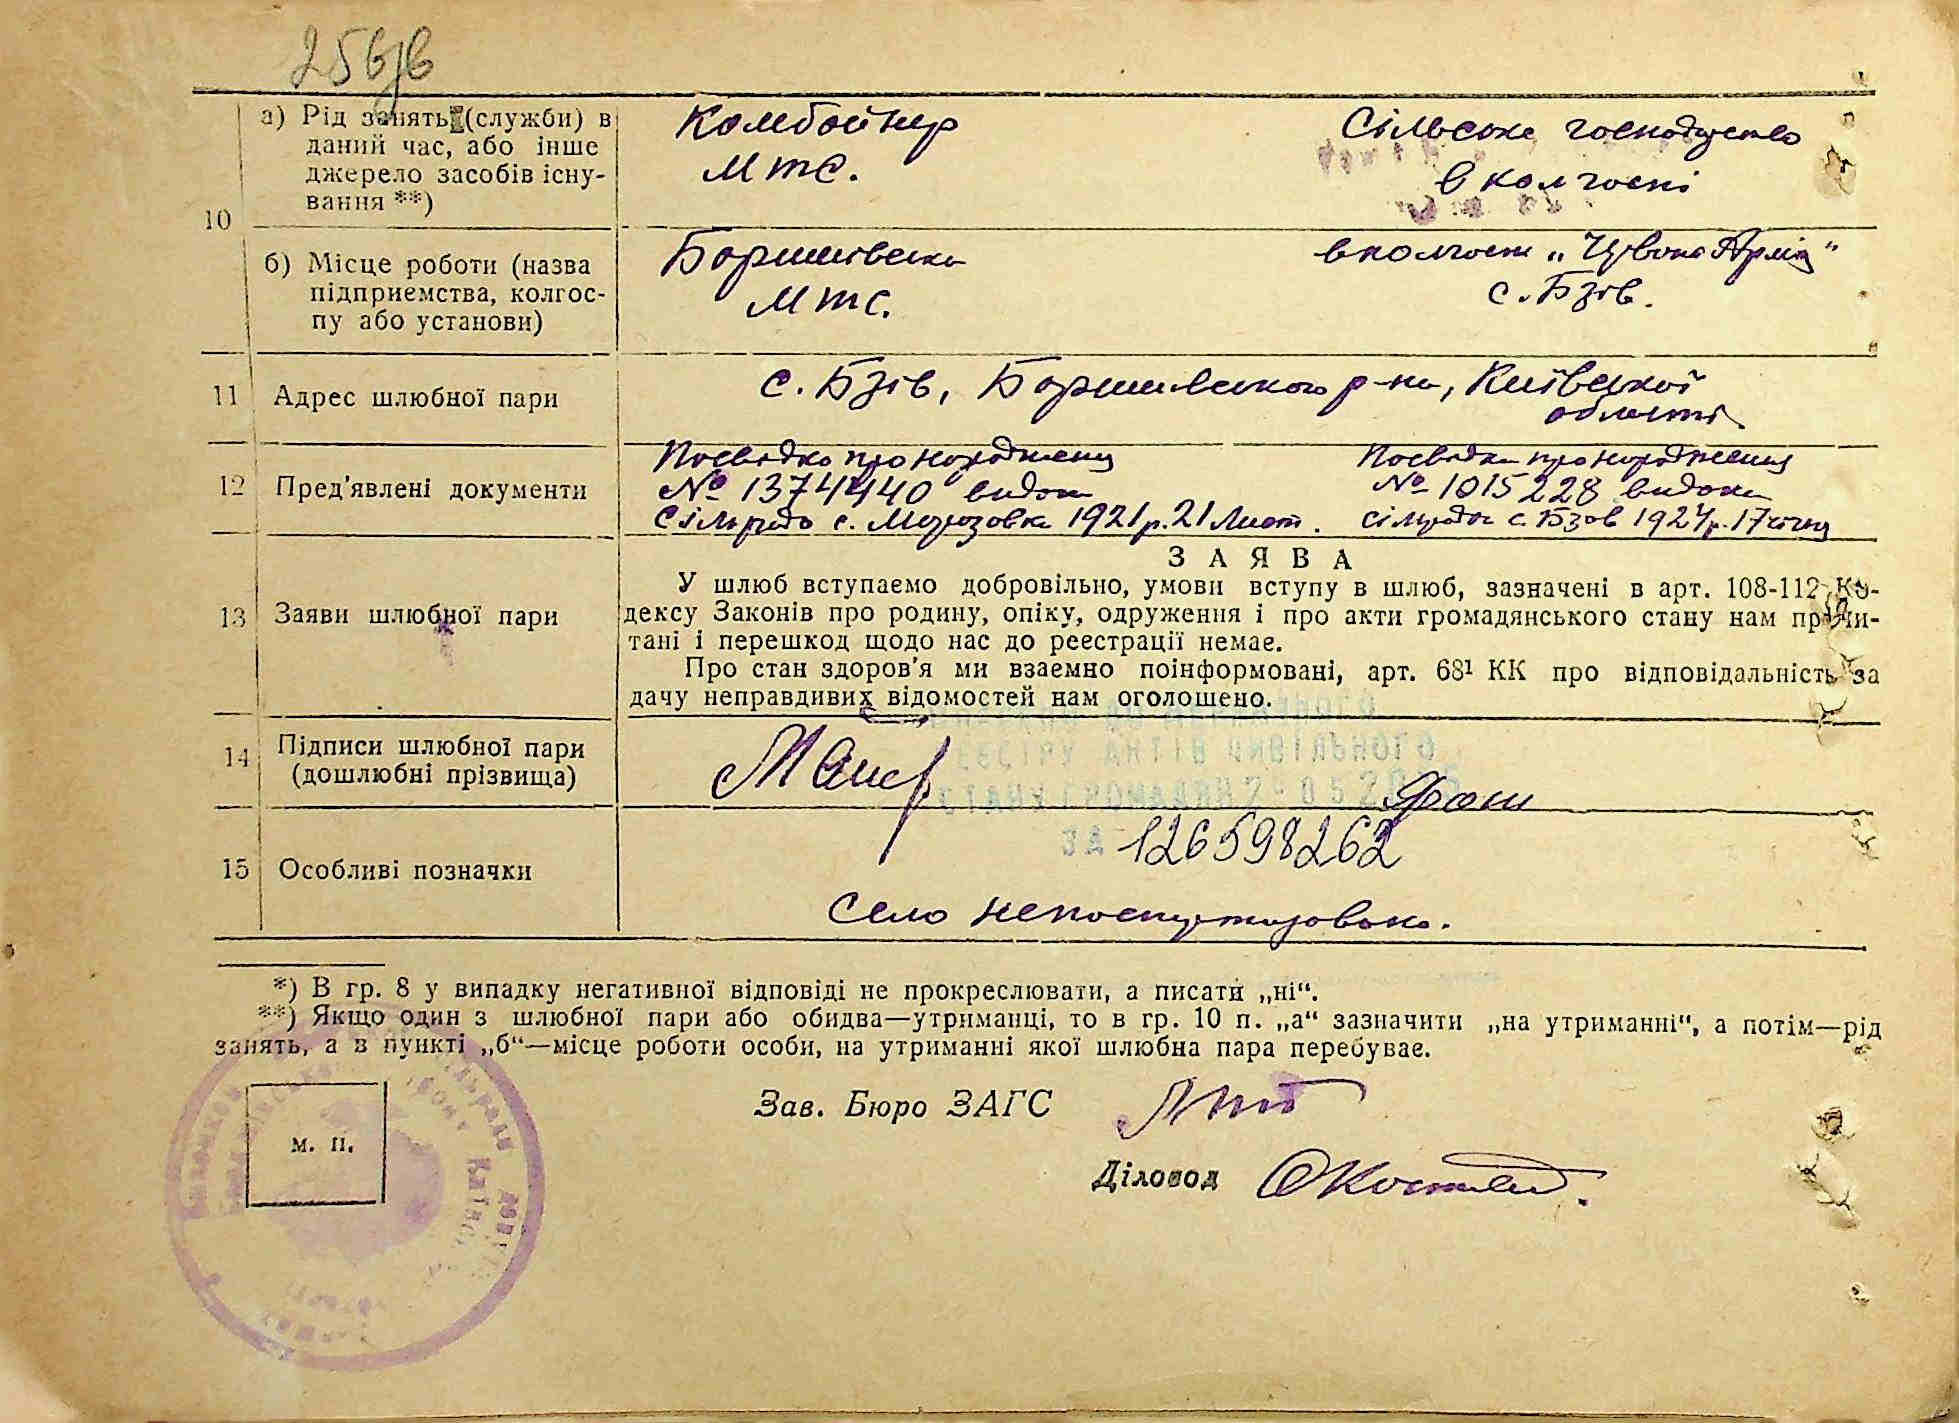 10
а) Рід занять (служби) в
даний час, або інше
джерело засобів існу-
вання **)
Комбайнер
МТС.
Сільське господарство
в колгоспі
б) Місце роботи (назва
підприємства, колгос-
пу або установи)
Баришівська
МТС.
в колгоспі „Червона Армія"
с. Бзів.
11 Адрес шлюбної пари
с. Бзів, Баришівського р-на, Київської
області.
12 Пред'явлені документи
Посвідка про народження
№ 1374440 видана
Сільрада с. Морозовка 1921 р. 21 Лист.
Посвідка про народження
№ 1015228 видана
сільрада с. Бзов 1924 р. 17 січня
13 Заяви шлюбної пари
ЗАЯВА
У шлюб вступаємо добровільно, умови вступу в шлюб, зазначені в арт. 108-112 Ко-
дексу Законів про родину, опіку, одруження і про акти громадянського стану нам прочи-
тані і перешкод щодо нас до реєстрації немає.
Про стан здоров'я ми взаємно поінформовані, арт. 68¹ КК про відповідальність за
дачу неправдивих відомостей нам оголошено.
14 Підписи шлюбної пари
(дошлюбні прізвища)
РЕЄСТРУ АКТІВ ЦИВІЛЬНОГО
СТАНУ ГРОМАДЯН
ЗА 126598262
15 Особливі позначки
Село
*) В гр. 8 у випадку негативної відповіді не прокреслювати, а писати „ні“.
**) Якщо один з шлюбної пари або обидва—утриманці, то в гр. 10 п. „а“ зазначити „на утриманні“, а потім—рід
занять, а в пункті „б“—місце роботи особи, на утриманні якої шлюбна пара перебуває.
Зав. Бюро ЗАГС
м. п.
Діловод